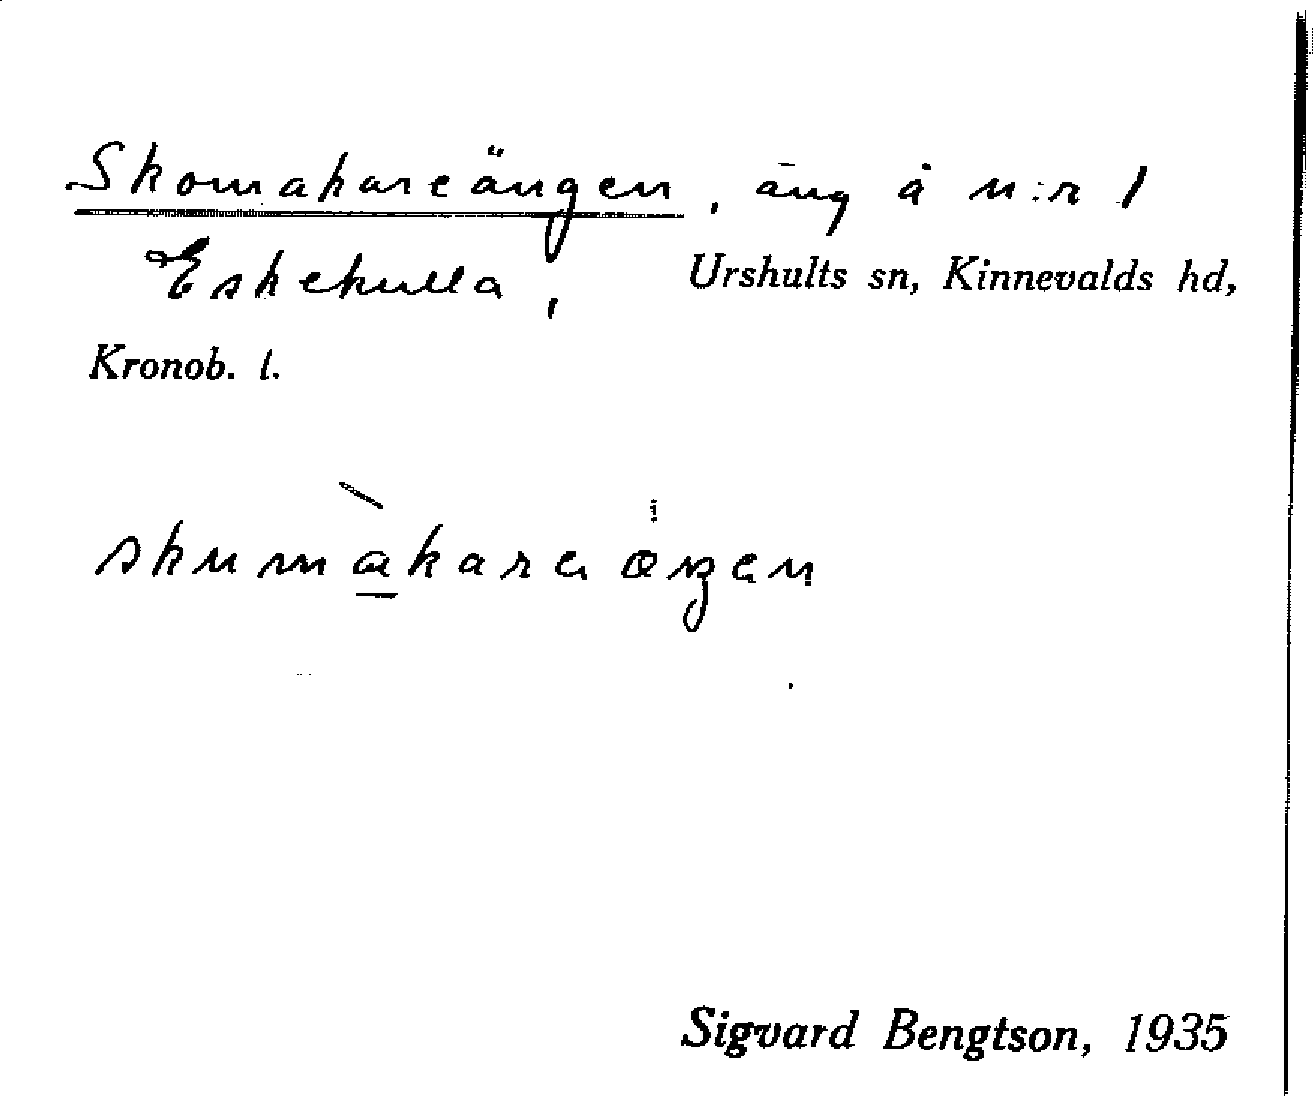 Skomakareängen, äng å n:r 1
Eskekulla, Urshults sn, Kinnevalds hd,
Kronob. l.
Sigvard Bengtson, 1935